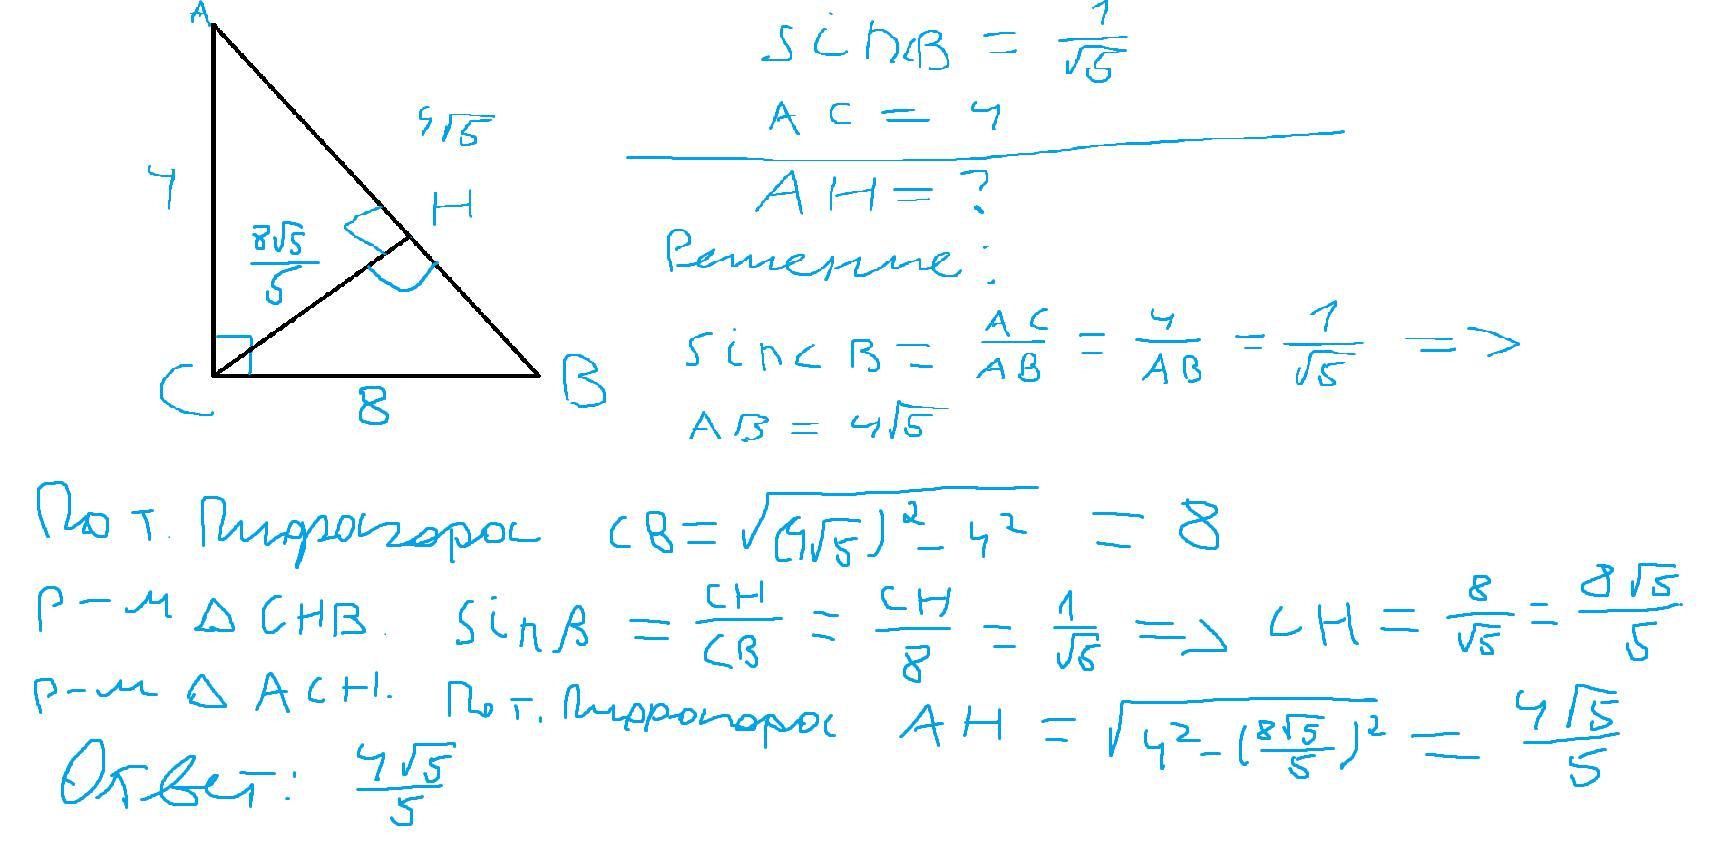 A
sin∠B = 1/√5
AC = 4
4√5
AH = ?
4
H
8√5/5
Решение:
C
8
B
sin∠B = AC/AB = 4/AB = 1/√5 =>
AB = 4√5
По т. Пифагора CB = √((4√5)² - 4²) = 8
Р-м △ CHB. sinB = CH/CB = CH/8 = 1/√5 => CH = 8/√5 = 8√5/5
Р-м △ ACH. По т. Пифагора AH = √(4² - (8√5/5)²) = 4√5/5
Ответ: 4√5/5